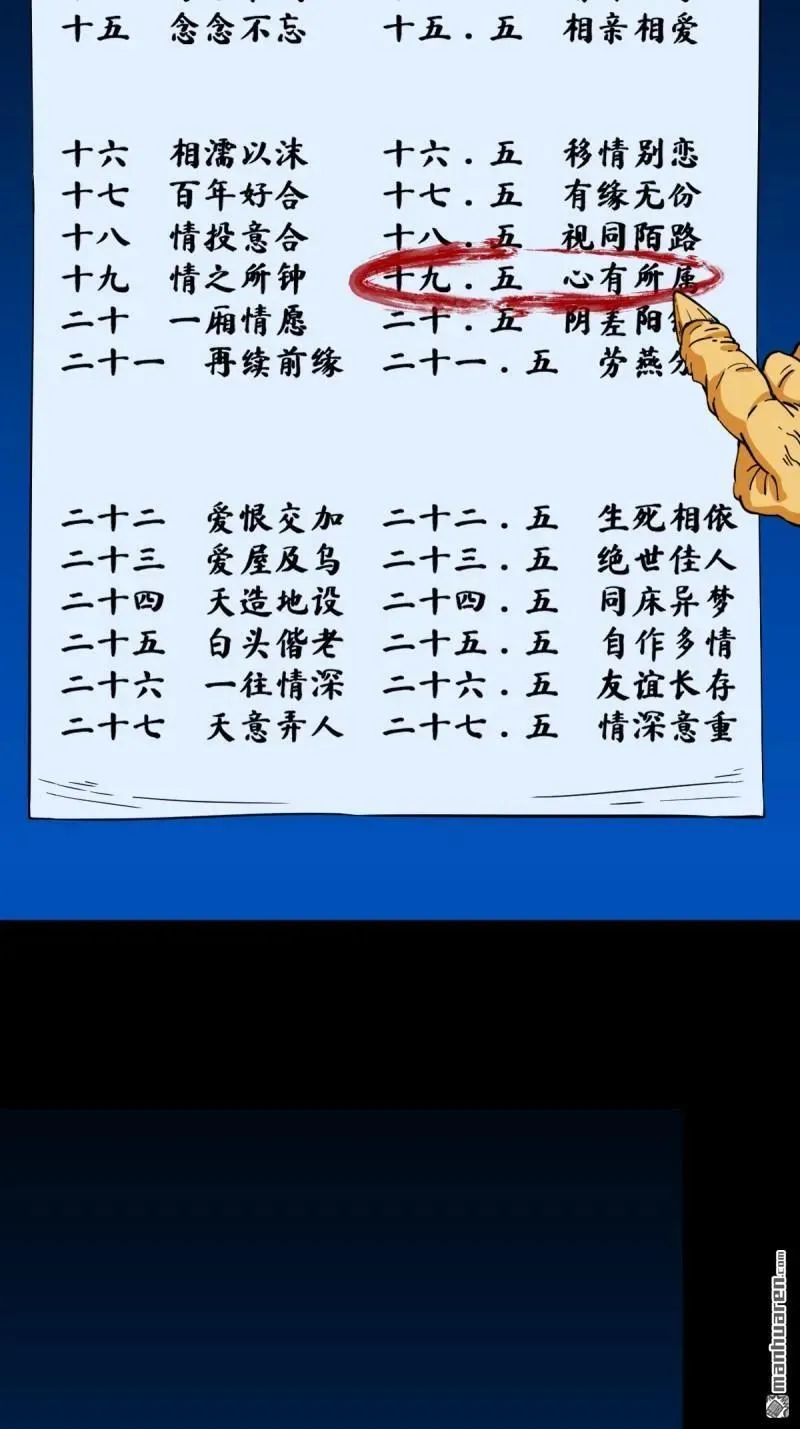 十五 念念不忘 十五.五 相亲相爱
十六 相濡以沫 十六.五 移情别恋
十七 百年好合 十七.五 有缘无份
十八 情投意合 十八.五 视同陌路
十九 情之所钟 十九.五 心有所属
二十 一厢情愿 二十.五 阴差阳
二十一 再续前缘 二十一.五 劳燕分
二十二 爱恨交加 二十二.五 生死相依
二十三 爱屋及乌 二十三.五 绝世佳人
二十四 天造地设 二十四.五 同床异梦
二十五 白头偕老 二十五.五 自作多情
二十六 一往情深 二十六.五 友谊长存
二十七 天意弄人 二十七.五 情深意重
manhuaren.com